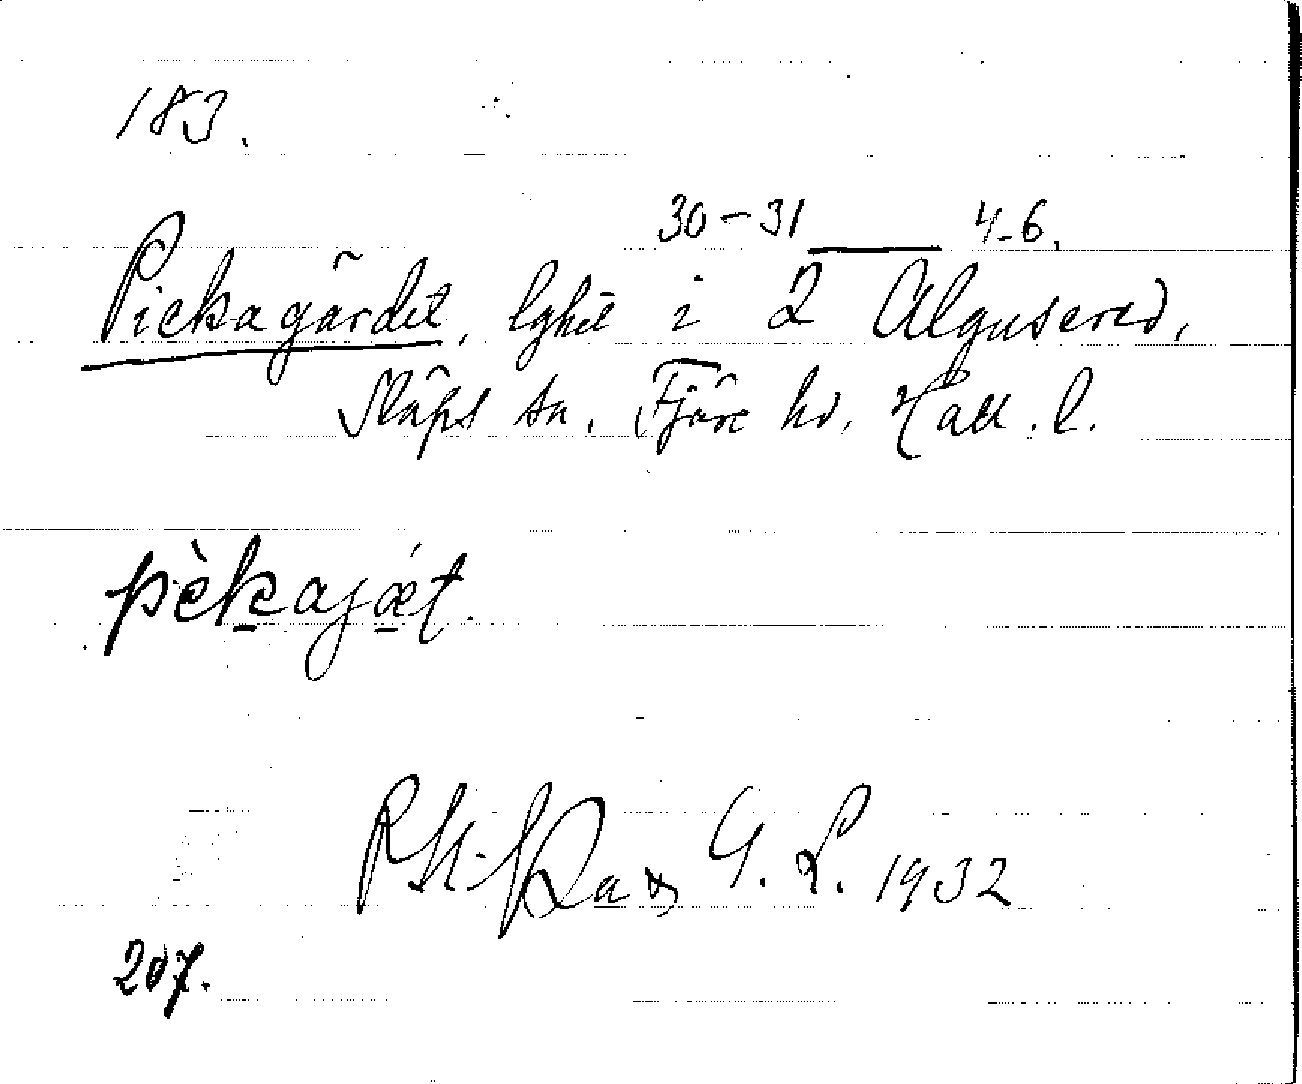 183.
30-31 4-6.
Pickagärdet, lght i 2 Algusered,
Släps sn. Fjäre hd, Hall. l.
pèkajǽt.
G. L. 1932
207.